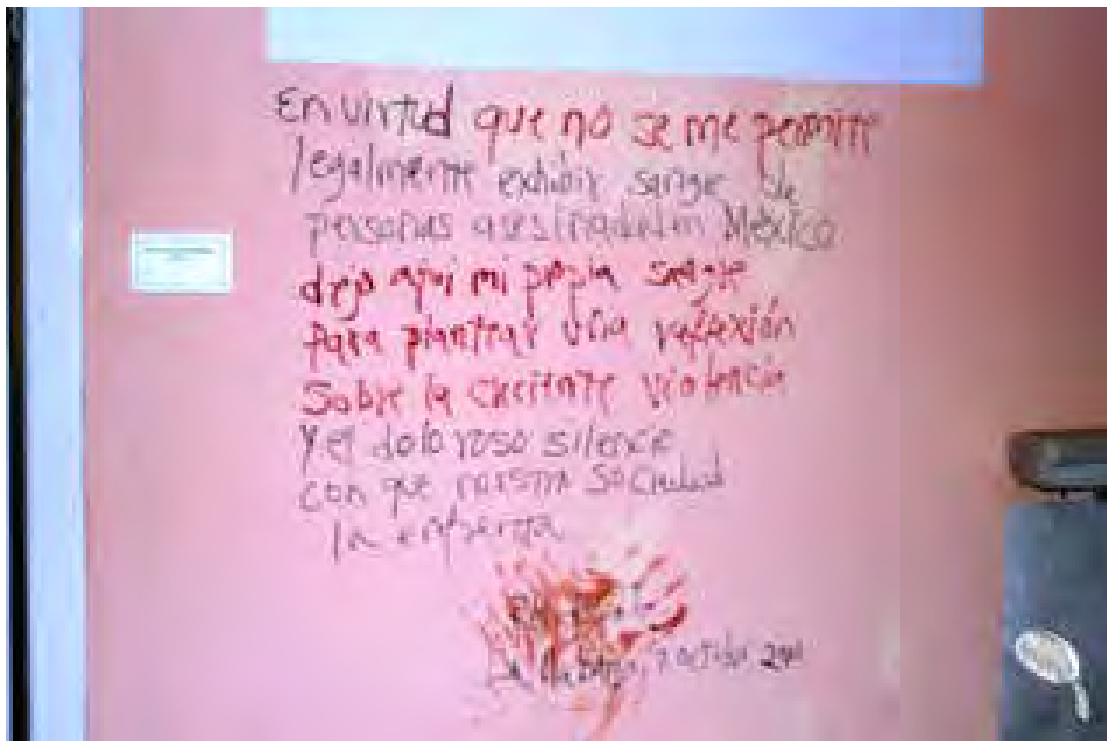 En virtud que no se me permite
legalmente exhibir sangre de
personas asesinadas en México
dejo aquí mi propia sangre
para plantear una reflexión
sobre la creciente violencia
y el doloroso silencio
con que nuestra sociedad
la enfrenta
La Habana, 7 octubre